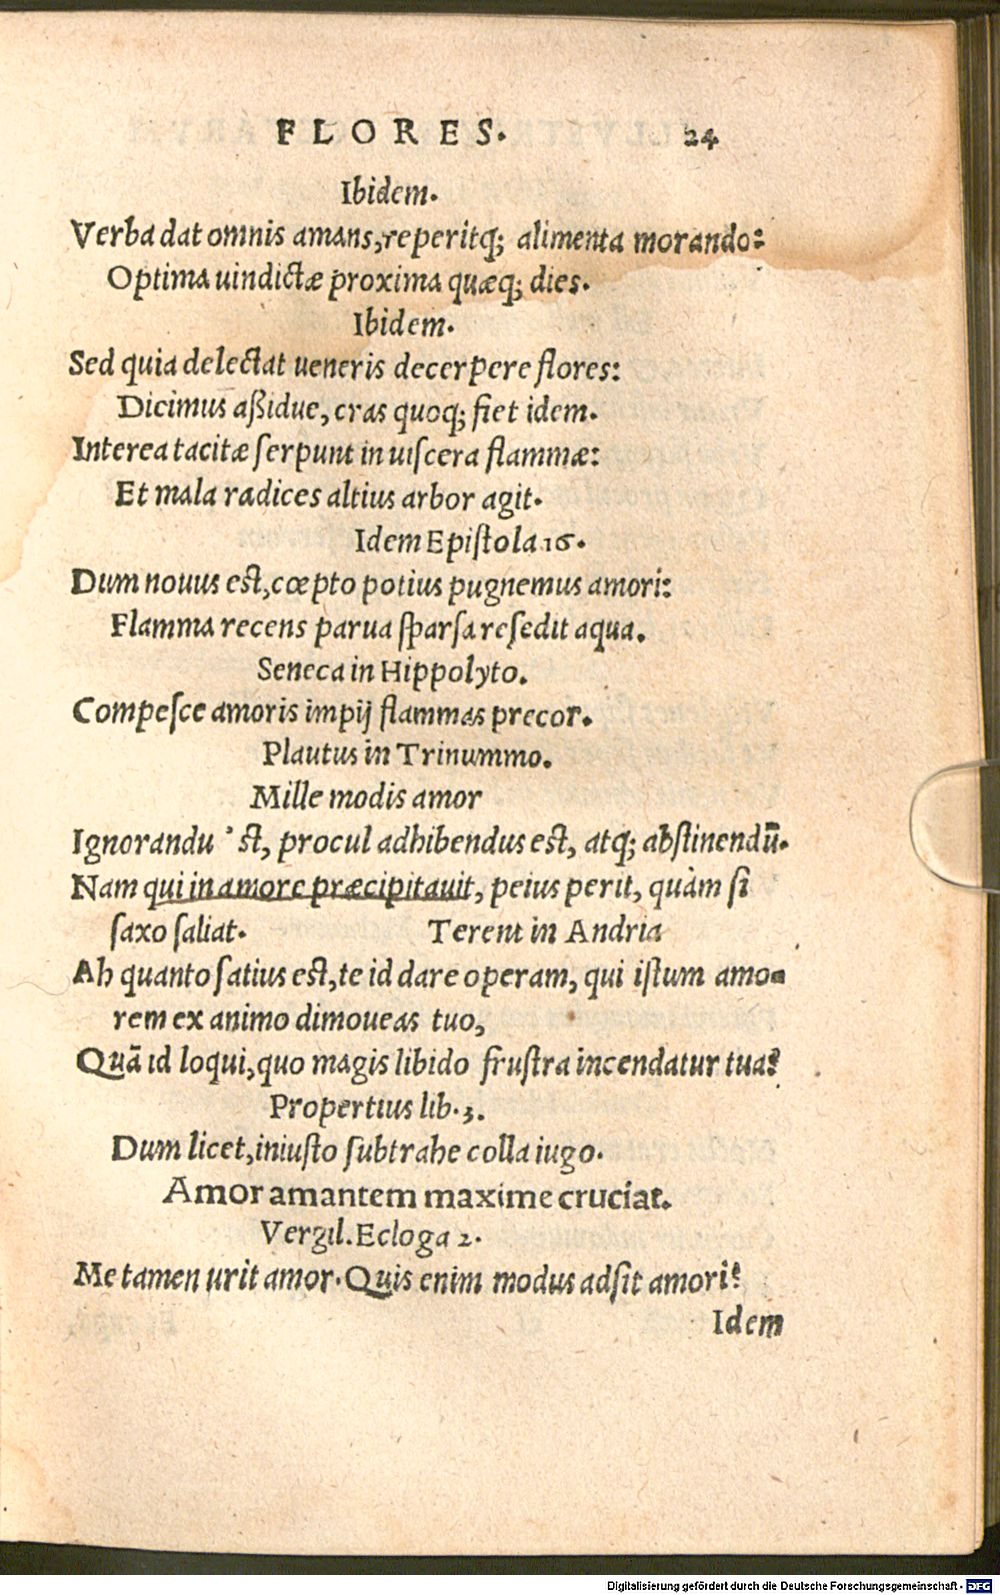 FLORES. 24
Ibidem.
Verba dat omnis amans, reperitq; alimenta morando:
Optima uindictæ proxima quæq; dies.
Ibidem.
Sed quia delectat ueneris decerpere flores:
Dicimus aßidue, cras quoq; fiet idem.
Interea tacitæ ſerpunt in uiſcera flammæ:
Et mala radices altius arbor agit.
Idem Epiſtola 16.
Dum nouus eſt, cœpto potius pugnemus amori:
Flamma recens parua ſparſa reſedit aqua.
Seneca in Hippolyto.
Compeſce amoris impij flammas precor.
Plautus in Trinummo.
Mille modis amor
Ignorandu 'ſt, procul adhibendus eſt, atq; abſtinendũ.
Nam qui in amore præcipitauit, peius perit, quàm ſi
ſaxo ſaliat. Terent in Andria
Ah quanto ſatius eſt, te id dare operam, qui iſtum amo-
rem ex animo dimoueas tuo,
Quã id loqui, quo magis libido fruſtra incendatur tua?
Propertius lib. 3.
Dum licet, iniuſto ſubtrahe colla iugo.
Amor amantem maxime cruciat.
Vergil. Ecloga 2.
Me tamen urit amor. Quis enim modus adſit amori?
Idem
Digitalisierung gefördert durch die Deutsche Forschungsgemeinschaft - DFG